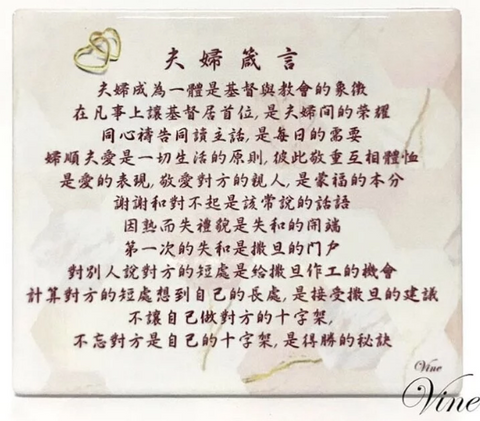 夫婦箴言
夫婦成為一體是基督與教會的象徵
在凡事上讓基督居首位,是夫婦間的榮耀
同心禱告同讀主話,是每日的需要
婦順夫愛是一切生活的原則,彼此敬重互相體恤
是愛的表現,敬愛對方的親人,是蒙福的本分
謝謝和對不起是該常說的話語
因熟而失禮貌是失和的開端
第一次的失和是撒旦的门户
對別人說對方的短處是給撒旦作工的機會
計算對方的短處想到自己的長處,是接受撒旦的建議
不讓自己做對方的十字架,
不忘對方是自己的十字架,是得勝的秘訣
Vine
Vine